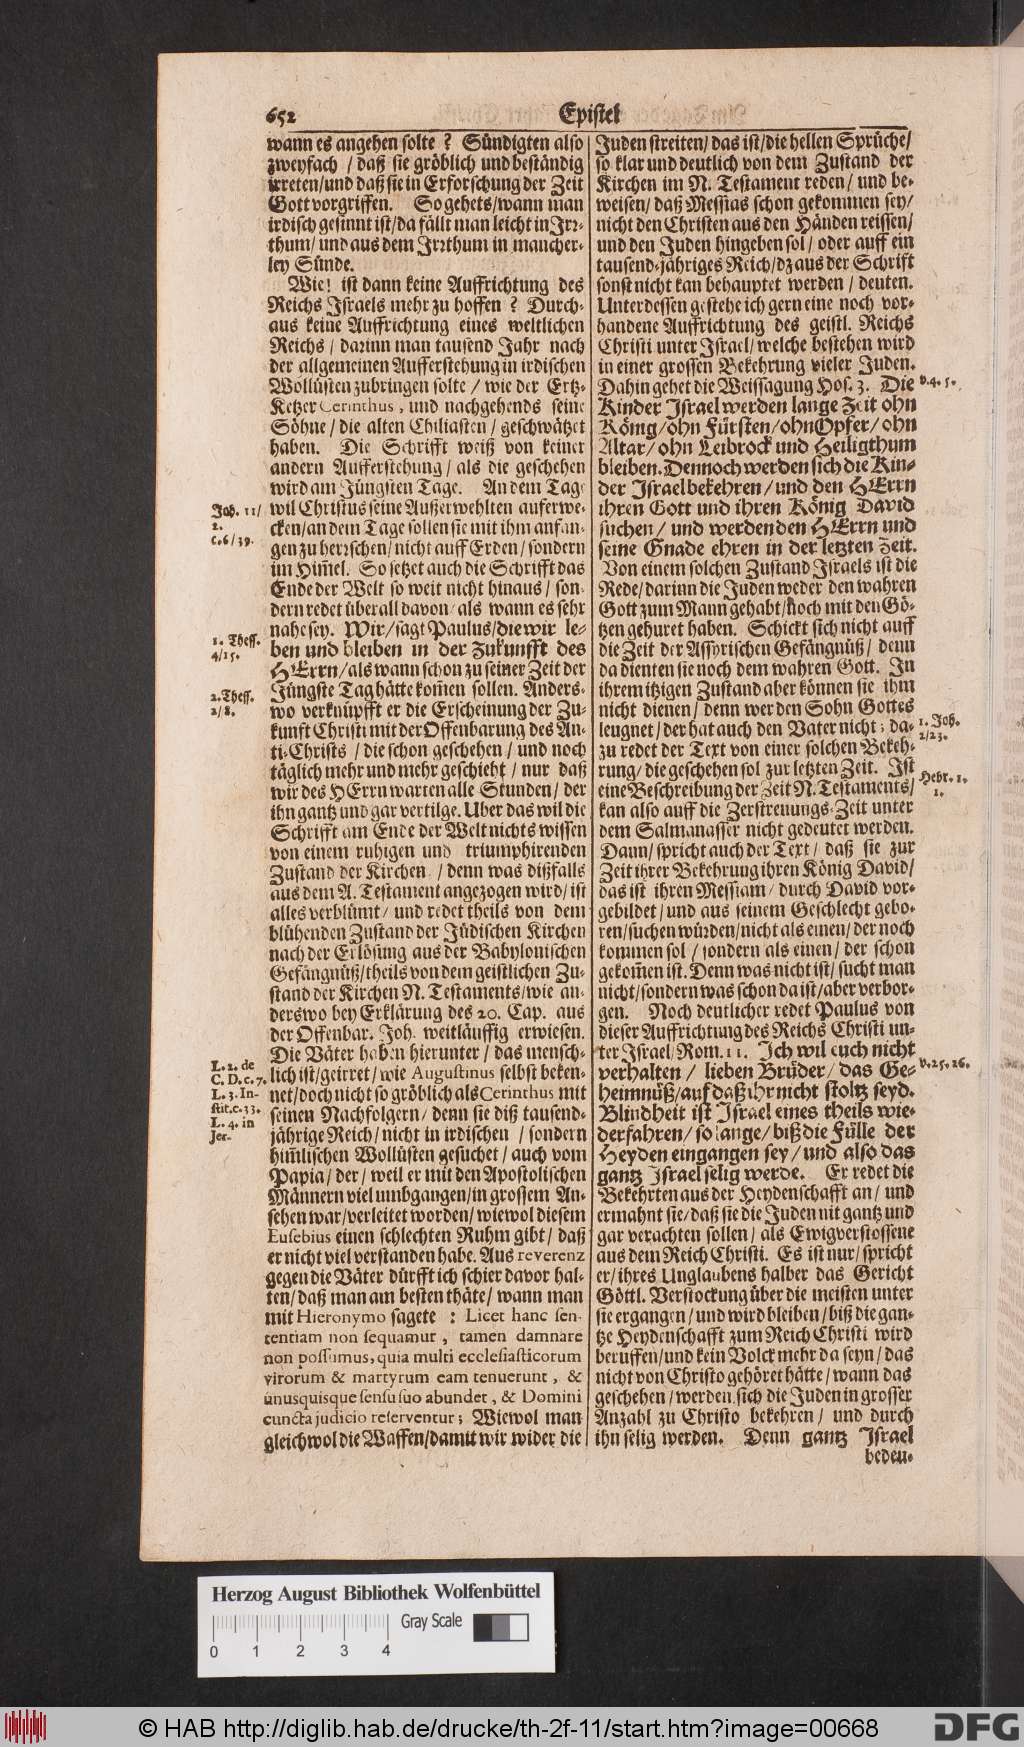 652
Epistel
wann es angehen solte? Sündigten also
zweyfach / daß sie gröblich und beständig
irreten/und daß sie in Erforschung der Zeit
Gott vorgriffen. So gehets/wann man
irdisch gesinnt ist/da fällt man leicht in Irr-
thum/ und aus dem Irrthum in mancher-
ley Sünde.
Wie! ist dann keine Auffrichtung des
Reichs Israels mehr zu hoffen? Durch-
aus keine Auffrichtung eines weltlichen
Reichs / darinn man tausend Jahr nach
der allgemeinen Aufferstehung in irdischen
Wollüsten zubringen solte / wie der Ertz-
Ketzer Cerinthus, und nachgehends seine
Söhne / die alten Chiliasten / geschwätzet
haben. Die Schrifft weiß von keiner
andern Aufferstehung / als die geschehen
wird am Jüngsten Tage. An dem Tage
wil Christus seine Außerwehlten auferwe-
cken/an dem Tage sollen sie mit ihm anfan-
gen zu herrschen/nicht auff Erden/sondern
im Him̃el. So setzet auch die Schrifft das
Ende der Welt so weit nicht hinaus / son-
dern redet überall davon/ als wann es sehr
nahe sey. Wir/sagt Paulus/die wir le-
ben und bleiben in der Zukunfft des
HErrn/als wann schon zu seiner Zeit der
Jüngste Tag hätte kom̃en sollen. Anders-
wo verknüpfft er die Erscheinung der Zu-
kunft Christi mit der Offenbarung des An-
ti-Christs / die schon geschehen / und noch
täglich mehr und mehr geschieht / nur daß
wir des HErrn warten alle Stunden/ der
ihn gantz und gar vertilge. Uber das wil die
Schrifft am Ende der Welt nichts wissen
von einem ruhigen und triumphirenden
Zustand der Kirchen / denn was dißfalls
aus dem A. Testament angezogen wird/ist
alles verblümt/ und redet theils von dem
blühenden Zustand der Jüdischen Kirchen
nach der Erlösung aus der Babylonischen
Gefängnüß/theils von dem geistlichen Zu-
stand der Kirchen N. Testaments/wie an-
derswo bey Erklärung des 20. Cap. aus
der Offenbar. Joh. weitläuffig erwiesen.
Die Väter haben hierunter / das mensch-
lich ist/geirret/ wie Augustinus selbst beken-
net/doch nicht so gröblich als Cerinthus mit
seinen Nachfolgern/ denn sie diß tausend-
jährige Reich/nicht in irdischen / sondern
him̃lischen Wollüsten gesuchet/ auch vom
Papia/ der/ weil er mit den Apostolischen
Männern viel umbgangen/in grossem An-
sehen war/verleitet worden/wiewol diesem
Eusebius einen schlechten Ruhm gibt/ daß
er nicht viel verstanden habe. Aus reverenz
gegen die Väter dürfft ich schier davor hal-
ten/daß man am besten thäte/ wann man
mit Hieronymo sagete : Licet hanc sen-
tentiam non sequamur, tamen damnare
non possumus, quia multi ecclesiasticorum
virorum & martyrum eam tenuerunt, &
unusquisque sensu suo abundet, & Domini
cuncta judicio reserventur; Wiewol man
gleichwol die Waffen/damit wir wider die
Joh. 11/
2.
c.6/39.
1. Thess.
4/15.
2. Thess.
2/8.
L. 2. de
C. D. c. 7.
L. 3. In-
stit. c. 33.
L. 4. in
Jer.
Juden streiten/das ist/die hellen Sprüche/
so klar und deutlich von dem Zustand der
Kirchen im N. Testament reden/ und be-
weisen/daß Messias schon gekommen sey/
nicht den Christen aus den Händen reissen/
und den Juden hingeben sol / oder auff ein
tausend-jähriges Reich/dz aus der Schrift
sonst nicht kan behauptet werden / deuten.
Unterdessen gestehe ich gern eine noch vor-
handene Auffrichtung des geistl. Reichs
Christi unter Israel/ welche bestehen wird
in einer grossen Bekehrung vieler Juden.
Dahin gehet die Weissagung Hos. 3. Die
Kinder Israel werden lange Zeit ohn
König/ohn Fürsten/ohn Opfer/ ohn
Altar/ ohn Leibrock und Heiligthum
bleiben. Dennoch werden sich die Kin-
der Israel bekehren/ und den HErrn
ihren Gott und ihren König David
suchen / und werden den HErrn und
seine Gnade ehren in der letzten Zeit.
Von einem solchen Zustand Israels ist die
Rede/darinn die Juden weder den wahren
Gott zum Mann gehabt/noch mit den Gö-
tzen gehuret haben. Schickt sich nicht auff
die Zeit der Assyrischen Gefängnüß/ denn
da dienten sie noch dem wahren Gott. In
ihrem itzigen Zustand aber können sie ihm
nicht dienen/ denn wer den Sohn Gottes
leugnet/der hat auch den Vater nicht; da-
zu redet der Text von einer solchen Bekeh-
rung/ die geschehen sol zur letzten Zeit. Ist
eine Beschreibung der Zeit N. Testaments/
kan also auff die Zerstreuungs-Zeit unter
dem Salmanasser nicht gedeutet werden.
Dann/spricht auch der Text/ daß sie zur
Zeit ihrer Bekehrung ihren König David/
das ist ihren Messiam/ durch David vor-
gebildet/und aus seinem Geschlecht gebo-
ren/suchen würden/nicht als einen/der noch
kommen sol / sondern als einen/ der schon
gekom̃en ist. Denn was nicht ist/ sucht man
nicht/sondern was schon da ist/aber verbor-
gen. Noch deutlicher redet Paulus von
dieser Auffrichtung des Reichs Christi un-
ter Israel/Rom. 11. Ich wil euch nicht
verhalten / lieben Brüder/ das Ge-
heimnüß/auf daß ihr nicht stoltz seyd.
Blindheit ist Israel eines theils wie-
derfahren/ so lange/ biß die Fülle der
Heyden eingangen sey/ und also das
gantz Israel selig werde. Er redet die
Bekehrten aus der Heydenschafft an/ und
ermahnt sie/daß sie die Juden nit gantz und
gar verachten sollen/ als Ewigverstossene
aus dem Reich Christi. Es ist nur/ spricht
er/ihres Unglaubens halber das Gericht
Göttl. Verstockung über die meisten unter
sie ergangen/und wird bleiben/biß die gan-
tze Heydenschafft zum Reich Christi wird
beruffen/und kein Volck mehr da seyn/das
nicht von Christo gehöret hätte/ wann das
geschehen/werden sich die Juden in grosser
Anzahl zu Christo bekehren/ und durch
ihn selig werden. Denn gantz Israel
bedeu-
v.4. 5.
1. Joh.
2/23.
Hebr. 1.
1.
v.25.26.
Herzog August Bibliothek Wolfenbüttel
Gray Scale
0 1 2 3 4
© HAB http://diglib.hab.de/drucke/th-2f-11/start.htm?image=00668
DFG